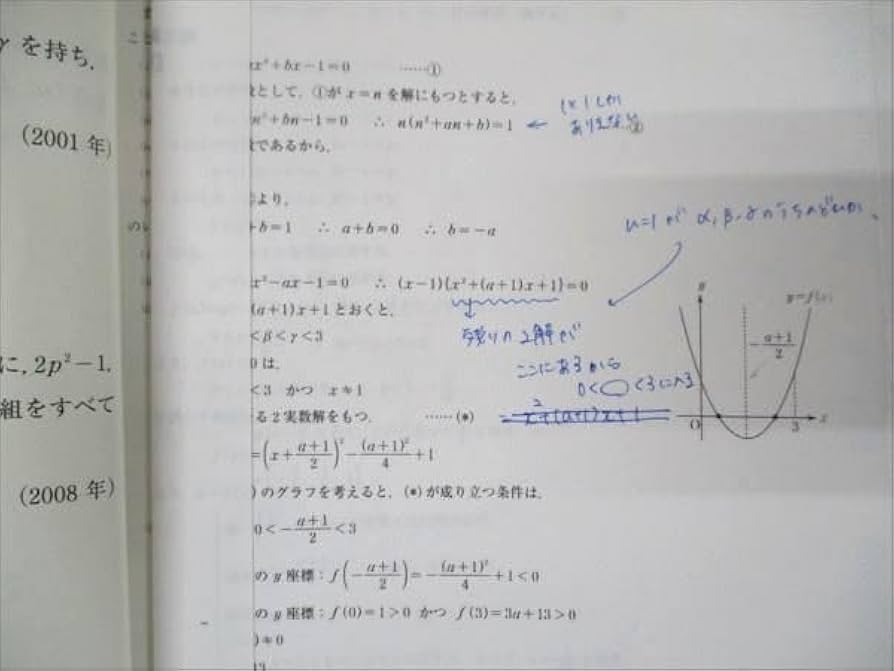 γ を持ち,
(2001 年)
に, 2p²−1,
組をすべて
(2008 年)
x³+bx−1=0 ……①
として, ①が x=n を解にもつとすると,
+bn−1=0 ∴ n(n²+an+b)=1 ←
であるから,
より,
+b=1 ∴ a+b=0 ∴ b=−a
n=1 が α, β, γ のうちのどれか、
x²−ax−1=0 ∴ (x−1){x²+(a+1)x+1}=0
(a+1)x+1 とおくと,
残りの2解が
<β<γ<3
ここにあるから
は,
0< <3に入る
<3 かつ x≠1
る2実数解をもつ. ……(*)
x²+(a+1)x+1
=(x+\frac{a+1}{2})²−\frac{(a+1)²}{4}+1
)のグラフを考えると, (*)が成り立つ条件は,
0<−\frac{a+1}{2}<3
の y 座標：f(−\frac{a+1}{2})=−\frac{(a+1)²}{4}+1<0
の y 座標：f(0)=1>0 かつ f(3)=3a+13>0
)≠0
13
y
y=f(x)
−\frac{a+1}{2}
O
3
x